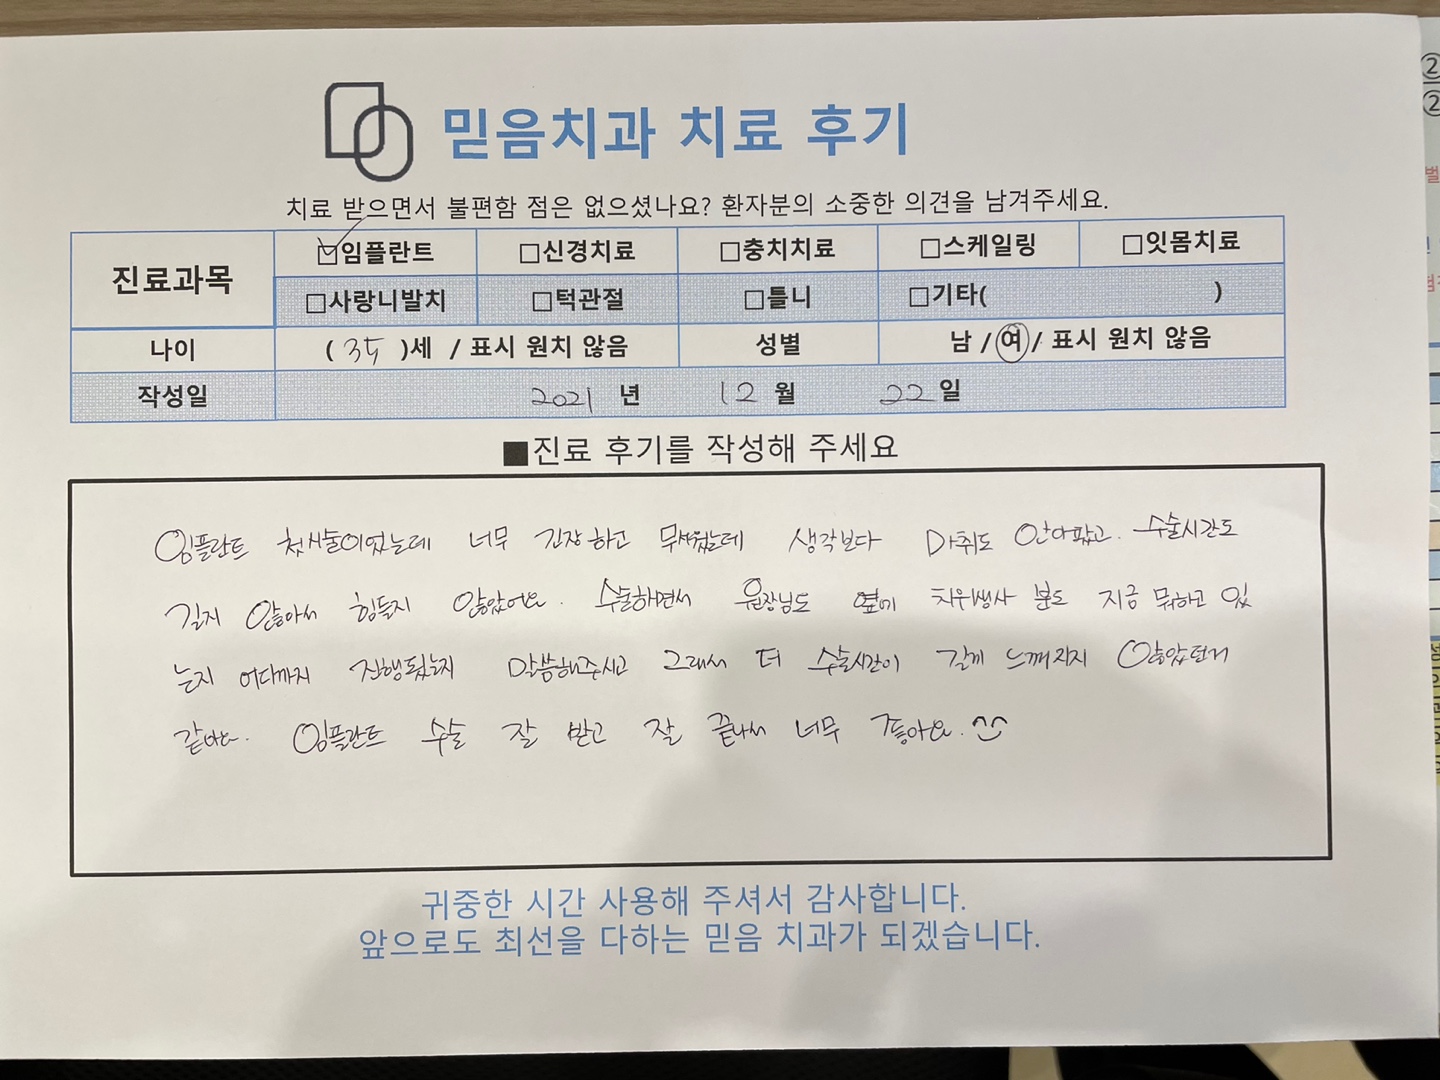 믿음치과 치료 후기
치료 받으면서 불편함 점은 없으셨나요? 환자분의 소중한 의견을 남겨주세요.
진료과목 ☑임플란트 □신경치료 □충치치료 □스케일링 □잇몸치료
□사랑니발치 □턱관절 □틀니 □기타( )
나이 ( 35 )세 / 표시 원치 않음 성별 남 / 여 / 표시 원치 않음
작성일 2021 년 12 월 22 일
■진료 후기를 작성해 주세요
임플란트 첫시술이었는데 너무 긴장하고 무서웠는데 생각보다 마취도 안아팠고. 수술시간도
길지 않아서 힘들지 않았어요. 수술하면서 원장님도 옆에 치위생사 분도 지금 뭐하고 있
는지 어디까지 진행됐는지 말씀해주시고 그래서 더 수술시간이 길게 느껴지지 않았던거
같아요. 임플란트 수술 잘 받고 잘 끝나서 너무 좋아요. ^^
귀중한 시간 사용해 주셔서 감사합니다.
앞으로도 최선을 다하는 믿음 치과가 되겠습니다.